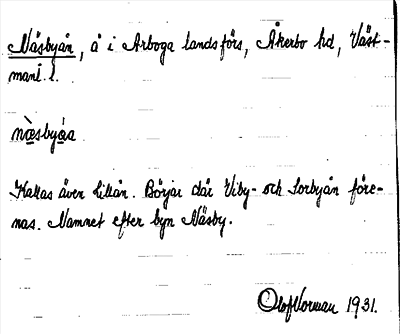 Näsbyån, å i Arboga landsförs, Åkerbo hd, Väst-
manl. l.
näsbyåa
Kallas även Lillån. Börjar där Viby- och Sorbyån före-
nas. Namnet efter byn Näsby.
Olof Norman 1931.